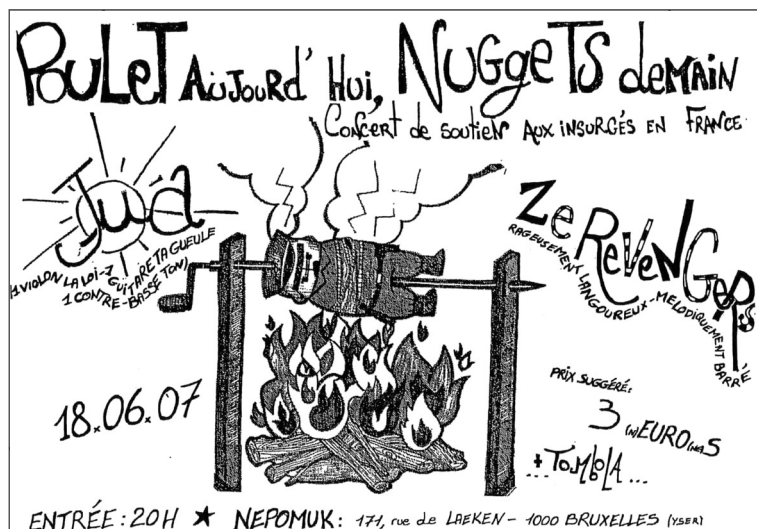 POULET AUJOURD'HUI, NUGGETS DEMAIN
CONCERT DE SOUTIEN AUX INSURGÉS EN FRANCE
Jua
(1 VIOLON LA LOI - 1 GUITARE TA GUEULE
1 CONTRE-BASSE TON)
ZE REVENGERS
RAGEUSEMENT LANGOUREUX - MELODIQUEMENT BARRÉ
18.06.07
PRIX SUGGÉRÉ:
3 (N)EURO(NE)S
...+ TOMBOLA...
ENTRÉE: 20H ★ NEPOMUK: 171, rue de LAEKEN - 1000 BRUXELLES (YSER)